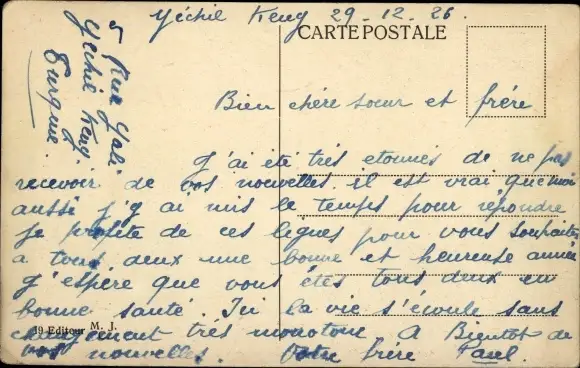 Yéchil Keuy 29-12-26.
CARTE POSTALE
5 Rue Yali
Yéchil Keuy.
Turquie.
Bien chère soeur et frère
J'ai été très etonnés de ne pas
recevoir de vos nouvelles il est vrai que moi
aussi j'y ai mis le temps pour répondre
je profite de ces lignes pour vous souhaiter
a tous deux une bonne et heureuse année
j'espère que vous êtes tous deux en
bonne santé. Ici la vie s'écoule sans
changement très monotone. A Bientot de
vos nouvelles. Votre frère Paul.
19 Editeur M. J.